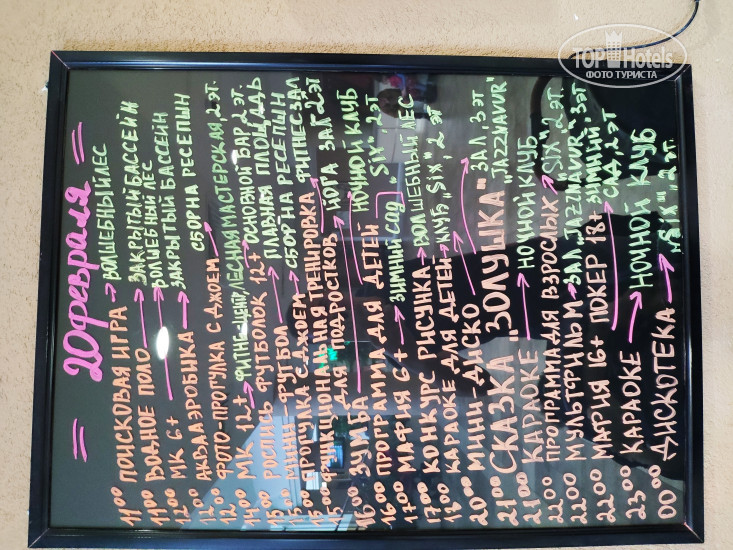 = 20 февраля =
11 00 ПОИСКОВАЯ ИГРА → ВОЛШЕБНЫЙ ЛЕС
11 00 ВОДНОЕ ПОЛО → ЗАКРЫТЫЙ БАССЕЙН
12 00 МК 6+ → ВОЛШЕБНЫЙ ЛЕС
12 00 АКВААЭРОБИКА → ЗАКРЫТЫЙ БАССЕЙН
12 00 ФОТО-ПРОГУЛКА С ДЖОЕМ → СБОР НА РЕСЕПШН
МК 12+ → ФИТНЕС-ЦЕНТР/ЛЕСНАЯ МАСТЕРСКАЯ 2 ЭТ.
РОСПИСЬ ФУТБОЛОК 12+ → ОСНОВНОЙ БАР, 2 ЭТ.
15 00 МИНИ-ФУТБОЛ → ГЛАВНАЯ ПЛОЩАДЬ
15 00 ПРОГУЛКА С ДЖОЕМ → СБОР НА РЕСЕПШН
15 00 ФУНКЦИОНАЛЬНАЯ ТРЕНИРОВКА ФИТНЕС ЗАЛ
ДЛЯ ПОДРОСТКОВ → ЙОГА ЗАЛ 2 ЭТ
16 00 ЗУМБА → НОЧНОЙ КЛУБ
16 00 ПРОГРАММА ДЛЯ ДЕТЕЙ „SIX", 2 ЭТ
17 00 МАФИЯ 6+ → ЗИМНИЙ САД
17 00 КОНКУРС РИСУНКА → ВОЛШЕБНЫЙ ЛЕС
18 00 КАРАОКЕ ДЛЯ ДЕТЕЙ → КЛУБ „SIX", 2 ЭТ
20 00 МИНИ ДИСКО → ЗАЛ, 3 ЭТ
21 00 СКАЗКА „ЗОЛУШКА" „JAZZNAVUR"
21 00 КАРАОКЕ → НОЧНОЙ КЛУБ
22 00 ПРОГРАММА ДЛЯ ВЗРОСЛЫХ → „SIX" 2 ЭТ.
22 00 МУЛЬТФИЛЬМ → ЗАЛ „JAZZNAVUR", 3 ЭТ
22 00 МАФИЯ 16+ ПОКЕР 18+ → ЗИМНИЙ САД, 2 ЭТ
23 00 КАРАОКЕ → НОЧНОЙ КЛУБ
00 00 ДИСКОТЕКА → „SIX", 2 ЭТ.
TOP Hotels
ФОТО ТУРИСТА